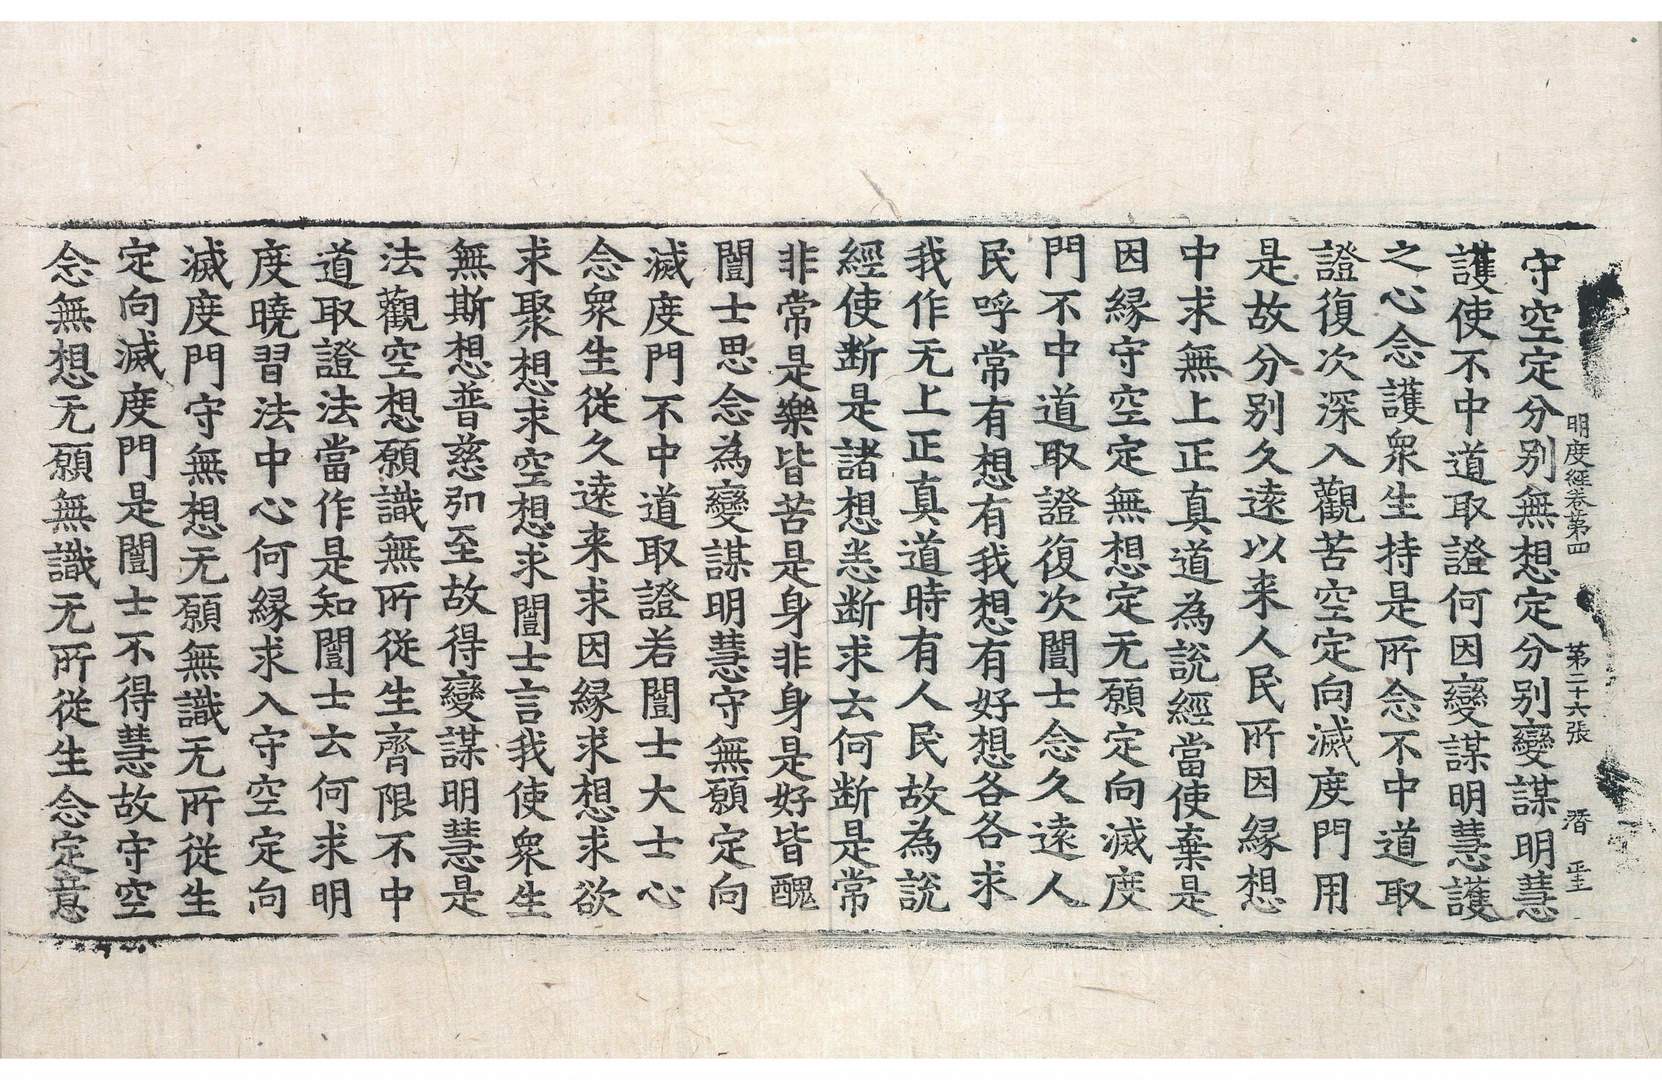 明度経卷第四 第二十六張
守空定分別無想定分別變謀明慧
護使不中道取證何因變謀明慧護
之心念護衆生持是所念不中道取
證復次深入觀苦空定向滅度門用
是故分別久遠以来人民所因縁想
中求無上正真道為說經當使棄是
因縁守空定無想定无願定向滅度
門不中道取證復次闓士念久遠人
民呼常有想有我想有好想各各求
我作无上正真道時有人民故為說
經使断是諸想悉断求云何断是常
非常是樂皆苦是身非身是好皆醜
闓士思念為變謀明慧守無願定向
滅度門不中道取證若闓士大士心
念衆生從久遠来求因縁求想求欲
求聚想求空想求闓士言我使衆生
無斯想普慈弘至故得變謀明慧是
法觀空想願識無所從生齊限不中
道取證法當作是知闓士云何求明
度曉習法中心何縁求入守空定向
滅度門守無想无願無識无所從生
定向滅度門是闓士不得慧故守空
念無想无願無識无所從生念定意